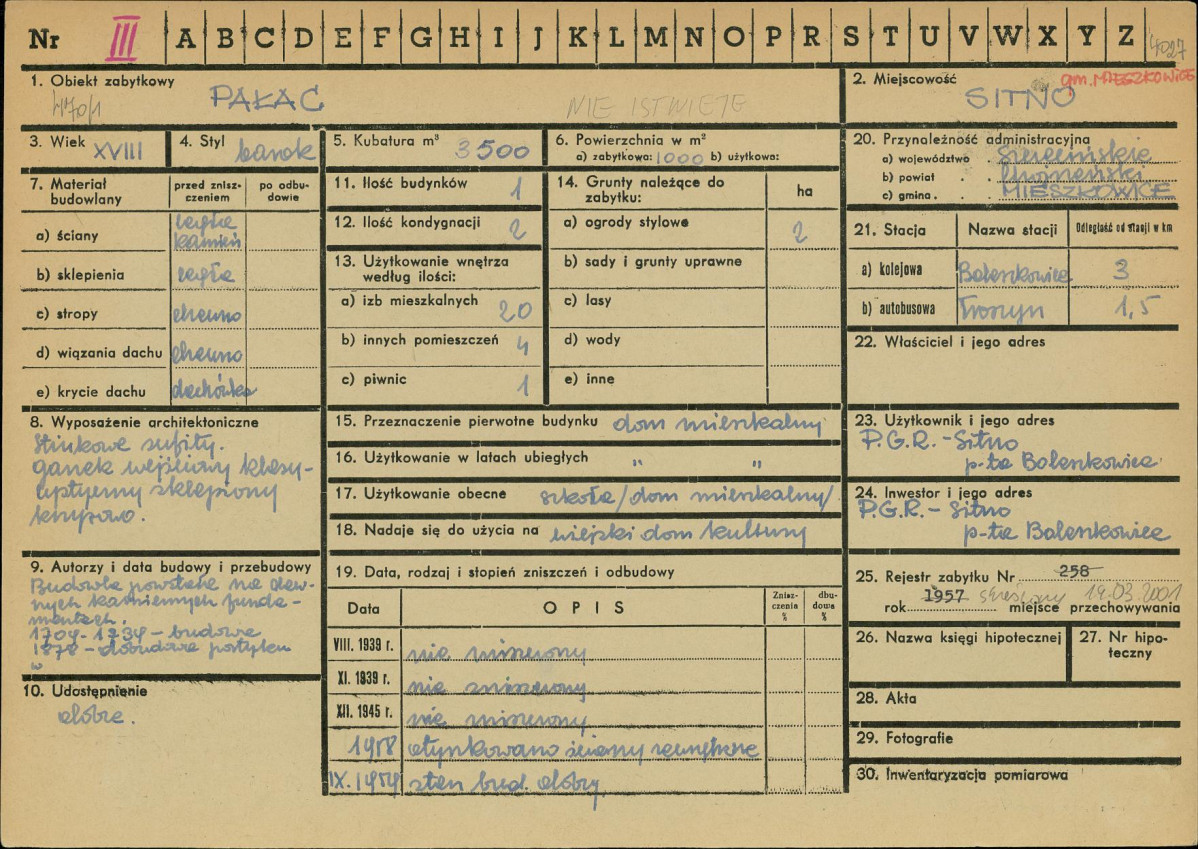 Nr III A B C D E F G H I J K L M N O P R S T U V W X Y Z 4027
1. Obiekt zabytkowy
470/1 PAŁAC NIE ISTNIEJE
2. Miejscowość gm. MIESZKOWICE
SITNO
3. Wiek XVIII
4. Styl barok
5. Kubatura m³ 3500
6. Powierzchnia w m²
a) zabytkowa: 1000 b) użytkowa:
7. Materiał budowlany
przed zniszczeniem
po odbudowie
a) ściany cegła kamień
b) sklepienia cegła
c) stropy drewno
d) wiązania dachu drewno
e) krycie dachu dachówka
8. Wyposażenie architektoniczne
Stiukowe sufity.
ganek wejściowy klasy-
cystyczny sklepiony
krzyżowo.
9. Autorzy i data budowy i przebudowy
Budowla powstała na daw-
nych kamiennych funda-
mentach.
1704-1734 - budowa
1878 - dobudowa portyku
10. Udostępnienie
dobre.
11. Ilość budynków 1
12. Ilość kondygnacji 2
13. Użytkowanie wnętrza
według ilości:
a) izb mieszkalnych 20
b) innych pomieszczeń 4
c) piwnic 1
14. Grunty należące do
zabytku:
ha
a) ogrody stylowe 2
b) sady i grunty uprawne
c) lasy
d) wody
e) inne
15. Przeznaczenie pierwotne budynku dom mieszkalny
16. Użytkowanie w latach ubiegłych " "
17. Użytkowanie obecne szkoła /dom mieszkalny/
18. Nadaje się do użycia na wiejski dom kultury
19. Data, rodzaj i stopień zniszczeń i odbudowy
Data OPIS Znisz-
czenia
% dbu-
dowa
%
VIII. 1939 r. nie zniszczony
XI. 1939 r. nie zniszczony
XII. 1945 r. nie zniszczony
1958 otynkowano ściany zewnętrzne
IX. 1959 stan bud. dobry
20. Przynależność administracyjna
a) województwo . Szczecińskie
b) powiat . . Chojeński
c) gmina . . MIESZKOWICE
21. Stacja Nazwa stacji Odległość od stacji w km
a) kolejowa Boleszkowice 3
b) autobusowa Troszyn 1,5
22. Właściciel i jego adres
23. Użytkownik i jego adres
P.G.R. - Sitno
p-ta Boleszkowice
24. Inwestor i jego adres
P.G.R. - Sitno
p-ta Boleszkowice
25. Rejestr zabytku Nr 258
rok 1957 skreślony 19.03.2001 miejsce przechowywania
26. Nazwa księgi hipotecznej
27. Nr hipo-
teczny
28. Akta
29. Fotografie
30. Inwentaryzacja pomiarowa